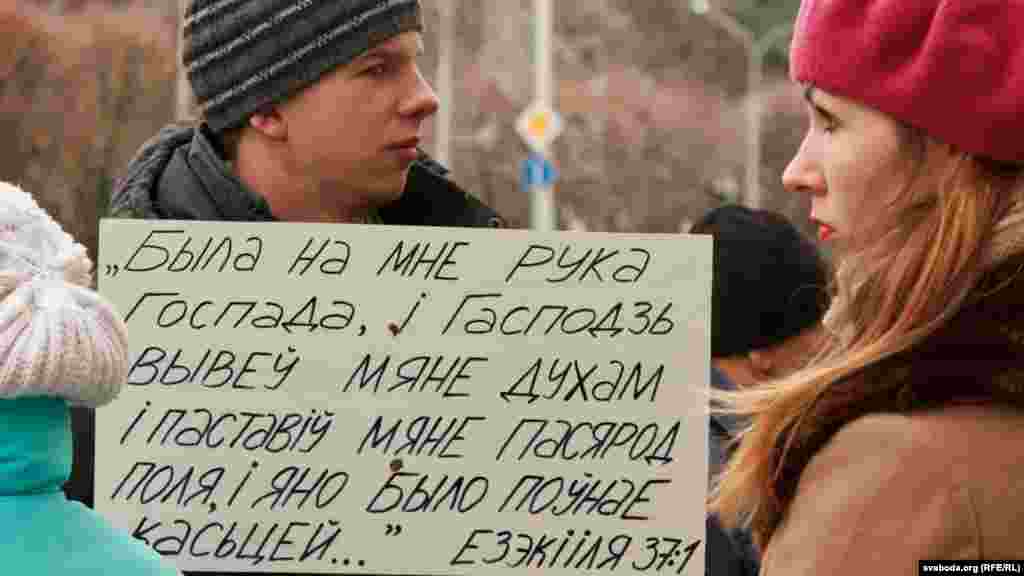 „Была на мне рука
Госпада, і Гасподзь
вывеў мяне духам
і паставіў мяне пасярод
поля, і яно было поўнае
касьцей..." Езэкііля 37:1
svaboda.org (RFE/RL)